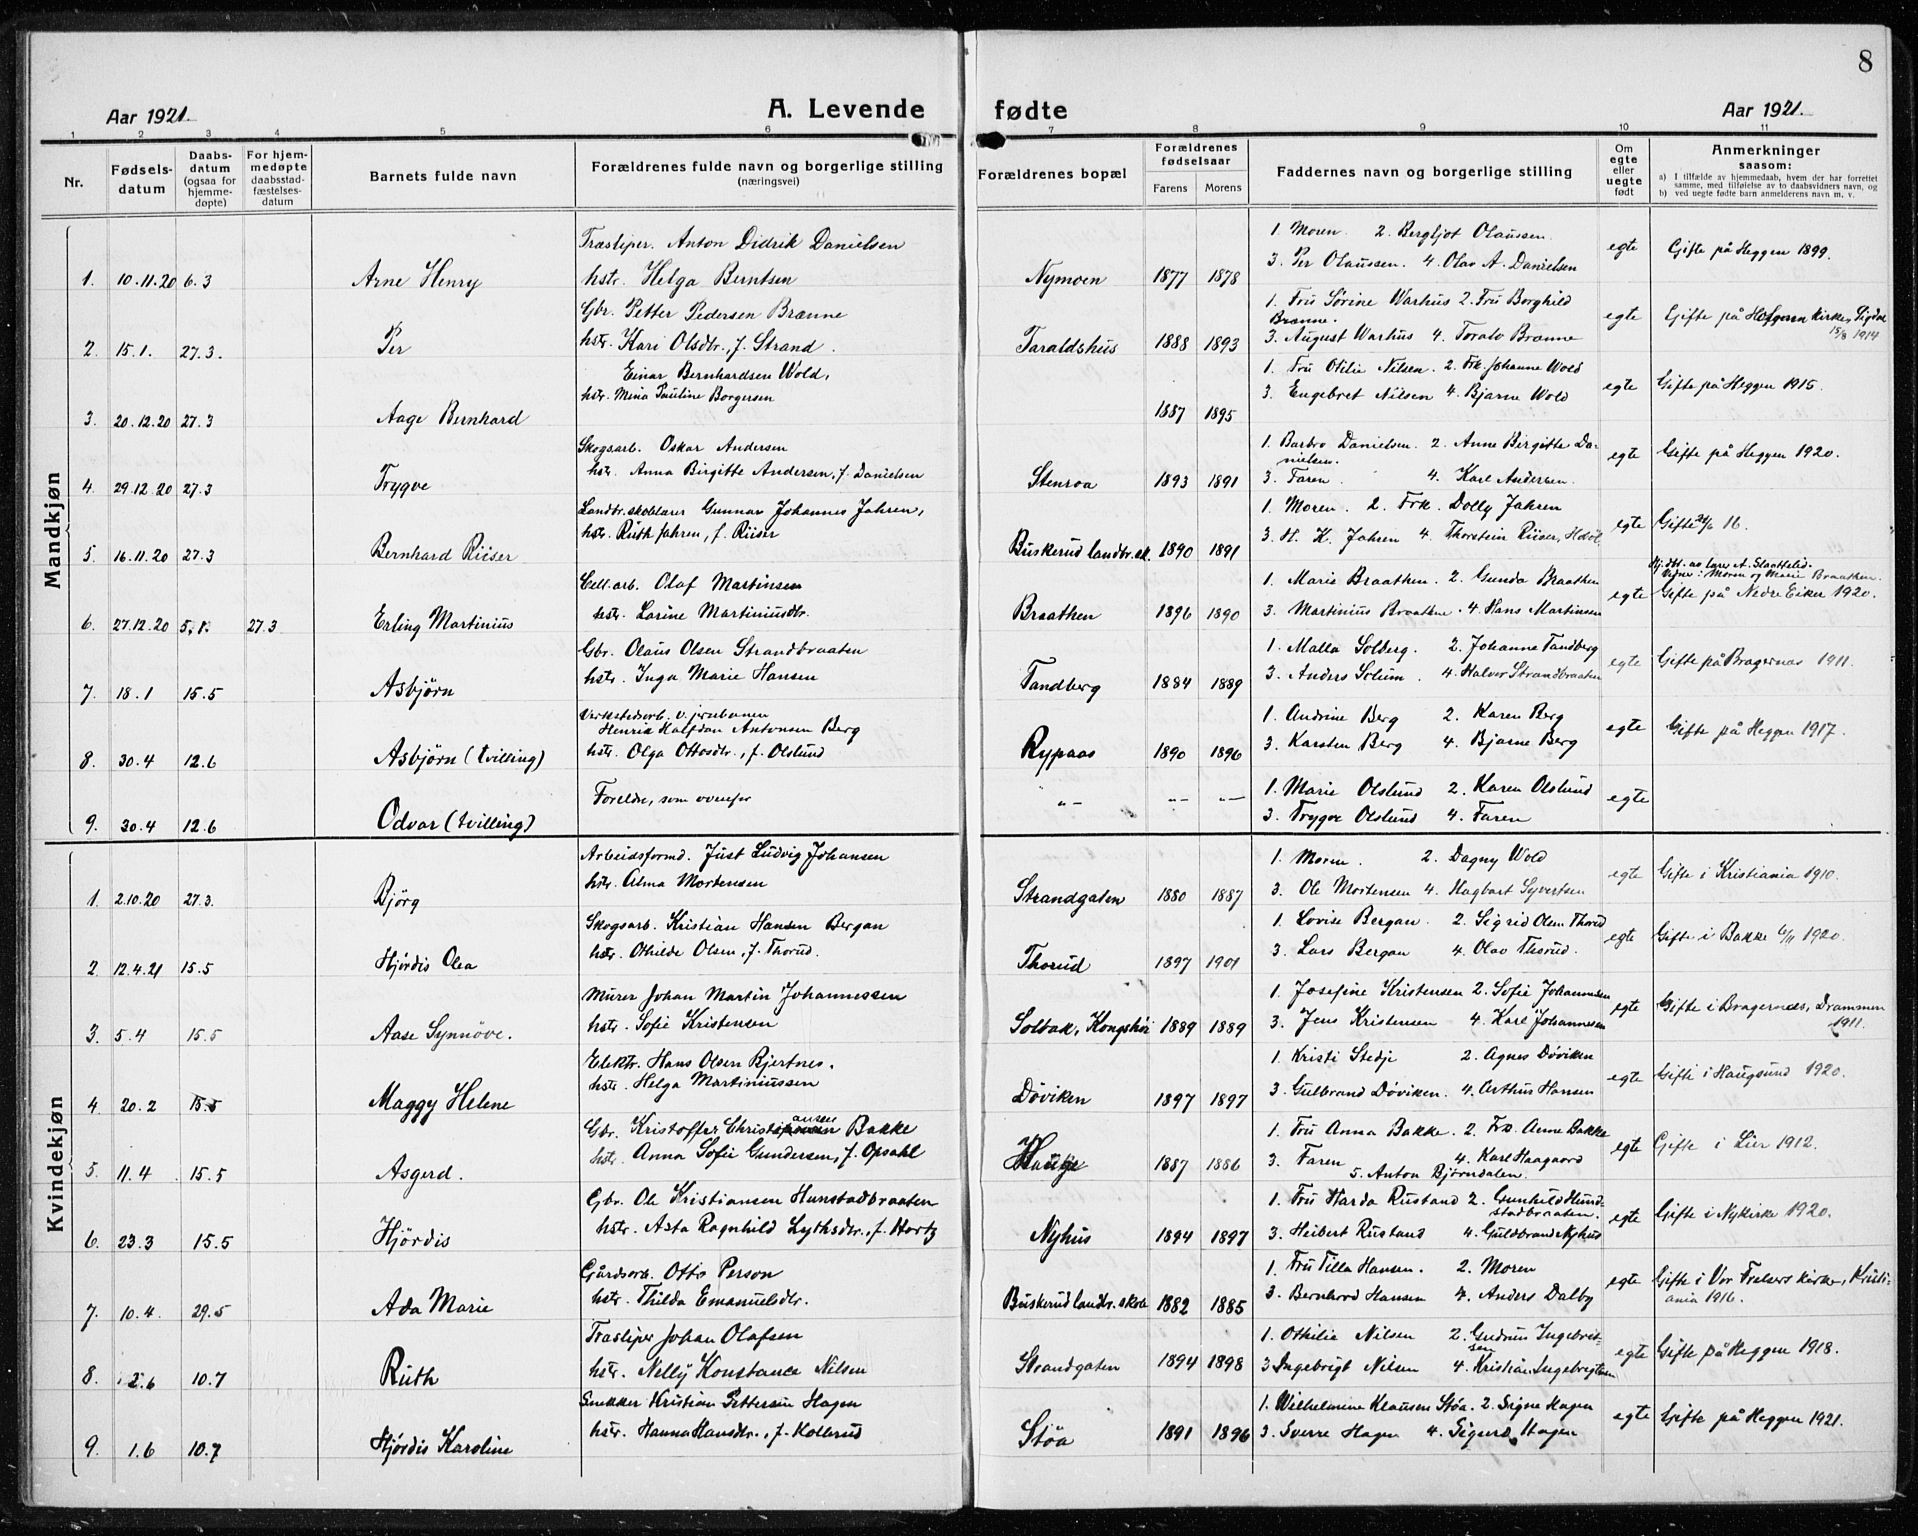 8
Aar 1921.
A. Levende fødte
Aar 1921.
1 2 3 4 5 6 7 8 9 10 11
Nr.
Fødsels-
datum
Daabs-
datum
(ogsaa for
hjemme-
døpte)
For hjem-
medøpte
daabsstad-
fæstelses-
datum
Barnets fulde navn
Forældrenes fulde navn og borgerlige stilling
(næringsvei)
Forældrenes bopæl
Forældrenes
fødselsaar
Farens Morens
Faddernes navn og borgerlige stilling
Om
egte
eller
uegte
født
Anmerkninger
saasom:
a) I tilfælde av hjemmedaab, hvem der har forrettet
samme, med tilføielse av to daabsvidners navn, og
b) ved uegte fødte barn anmelderens navn m. v.
Mandkjøn
Træsliper. Anton Didrik Danielsen
1. Moren. 2. Bergljot Olaussen.
egte Gifte på Heggen 1899.
1. 10.11.20 6.3 Arne Henry hstr. Helga Berntsen
Nymoen 1877 1878 3. Per Olaussen. 4. Olav A. Danielsen
Gbr. Petter Pedersen Brænne
1. Fru Sørine Warhus 2. Fru Borghild
Brænne.
egte Gifte på Holmen kirke, Sigdal
15/8 1914
2. 15.1. 27.3. Per hstr. Kari Olsdtr., f. Strand.
Taraldshus 1888 1893 3. August Warhus 4. Toralv Brænne
Einar Bernhardsen Wold,
1. Fru Otilie Nilsen. 2. Frk. Johanne Wold
egte Gifte på Heggen 1915.
hstr. Mina Pauline Borgersen
3. Engebret Nilsen 4. Bjarne Wold
3. 20.12.20 27.3 Aage Bernhard 1887 1895
Skogsarb. Oskar Andersen
1. Barbro Danielsen. 2. Anne Birgitte Da-
nielsen.
egte Gifte på Heggen 1920.
hstr. Anna Birgitte Andersen, f. Danielsen
4. 29.12.20 27.3 Trygve
Stenroa 1893 1891 3. Faren. 4. Karl Andersen.
Landbr.skolelærer Gunnar Johannes Jahren,
1. Moren. 2. Frk. Dolly Jahren
egte Gifte 16.
hstr. Ruth Jahren, f. Riiser
5. 16.11.20 27.3 Bernhard Riiser
Buskerud landbr.sk. 1890 1891 3. H. K. Jahren 4. Thorstein Riiser,
Hj.dbt. av lærer A. Slaattelid.
Vidner: Moren og Marie Braathen.
Cell.arb. Olaf Martinsen
1. Marie Braathen. 2. Gunda Braathen
egte Gifte på Nedre Eiker 1920.
6. 27.12.20 5.1. 27.3 Erling Martinius hstr. Lorine Martiniusdtr.
Braathen 1896 1890 3. Martinius Braathen. 4. Hans Martinsen
Gbr. Olaus Olsen Strandbraaten
1. Malla Solberg. 2. Johanne Tandberg
egte Gifte på Bragernæs 1911.
7. 18.1 15.5 Asbjörn hstr. Inga Marie Hansen
Tandberg 1884 1889 3. Anders Solum. 4. Halvor Strandbraaten
Verkstedsarb. v. jernbanen
Henrik Halfdan Antonsen Berg
1. Andrine Berg 2. Karen Berg
egte Gifte på Heggen 1917.
8. 30.4 12.6 Asbjörn (tvilling) hstr. Olga Ottosdtr., f. Olslund
Rypaas 1890 1896 3. Karsten Berg 4. Bjarne Berg
Foreldre, som ovenfor
1. Marie Olslund 2. Karen Olslund
egte
9. 30.4 12.6 Odvar (tvilling)
-"- -"- -"- 3. Trygve Olslund 4. Faren
Kvindekjøn
Arbeidsformd. Just Ludvig Johansen
1. Moren. 2. Dagny Wold
egte Gifte i Kristiania 1910.
1. 2.10.20 27.3. Bjørg hstr. Alma Mortensen
Strandgaten 1880 1887 3. Ole Mortensen 4. Hagbart Syvertsen
Skogsarb. Kristian Hansen Bergan
1. Lovise Bergan. 2. Sigrid Olsen Thorud
egte Gifte i Bakke 6/11 1920.
2. 12.4.21 15.5 Hjördis Olea hstr. Othilde Olsen, f. Thorud.
Thorud 1897 1901 3. Lars Bergan 4. Olav Thorud.
Murer Johan Martin Johannessen
1. Josefine Kristensen 2. Sofie Johannesen
egte Gifte i Bragernæs, Drammen
1911.
3. 5.4 15.5 Aase Synnöve. hstr. Sofie Kristensen
Solbak, 1889 1889 3. Jens Kristensen 4. Karl Johannesen
Elektr. Hans Olsen Bjertnes.
1. Kristi Stedje 2. Agnes Döviken
egte Gifte i Haugsund 1920.
4. 20.2 15.5 Maggy Helene hstr. Helga Martiniussen
Döviken 1897 1897 3. Gulbrand Döviken. 4. Arthur Hansen
Gbr. Kristoffer Christiansen Bakke
1. Fru Anna Bakke. 2. Frk. Anne Bakke
egte Gifte i Lier 1912.
5. 11.4 15.5 Asgerd. hstr. Anna Sofie Gundersen, f. Opsahl
1887 1886 3. Faren 4. Karl Haagaard
5. Anton Björndalen.
Gbr. Ole Kristiansen Hunstadbraaten
1. Fru Harda Rustand 2. Gunhild Hund-
stadbraaten.
egte Gifte i Nykirke 1920.
6. 23.3 15.5 Hjördis hstr. Asta Ragnhild Lythsdtr., f. Hortz
Nyhus 1894 1897 3. Heibert Rustand 4. Guldbrand Nyhus
Gårdsarb. Otto Person
1. Fru Tilla Hansen. 2. Moren
egte Gifte i Vor Frelsers Kirke, Kristi-
ania 1916.
7. 10.4. 29.5 Ada Marie hstr. Thilda Emanuelsdtr.
Buskerud landbr. skole 1882 1885 3. Bernhard Hansen 4. Anders Dalby
Træsliper Johan Olafsen
1. Othilie Nilsen 2. Gudrun Ingebrigt-
sen
egte Gifte på Heggen 1918.
8. 2.6 10.7 Ruth hstr. Nelly Konstance Nilsen
Strandgaten 1894 1898 3. Ingebrigt Nilsen 4. Kristian Ingebrigtsen
Snekker Kristian Pettersen Hagen
1. Wilhelmine Klausen Støa. 2. Signe Hagen
egte Gifte på Heggen 1921.
9. 1.6 10.7 Hjördis Karoline hstr. Hanna Hansdtr., f. Kolbrud
Støa 1891 1896 3. Sverre Hagen 4. Sigurd Hagen